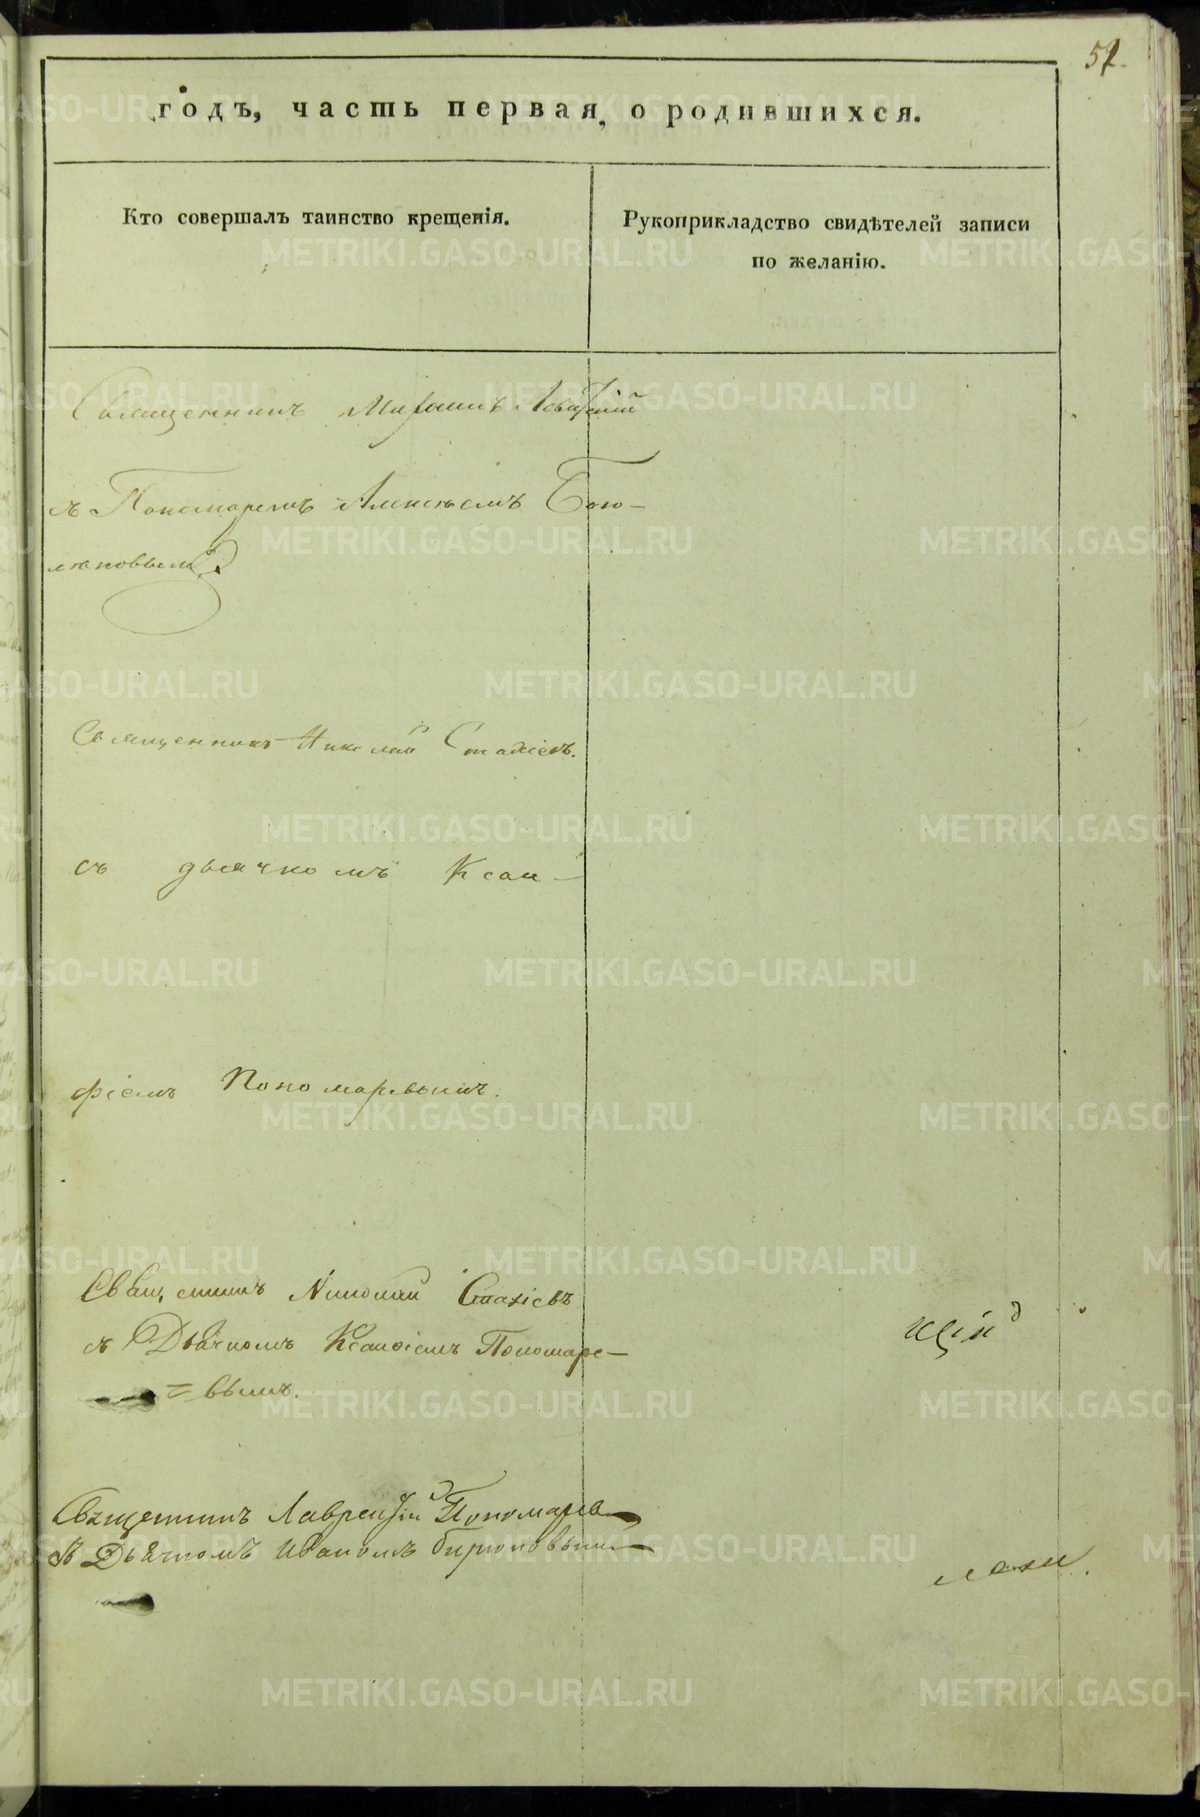 52.
годъ, часть первая, о родившихся.
Кто совершалъ таинство крещенія.
Рукоприкладство свидѣтелей записи
по желанію.
Священникъ
съ Пономаремъ Алексѣемъ Бого-
Священникъ Николай Стахіевъ.
съ дьячкомъ Ксан-
фіемъ Пономаревымъ.
Священникъ Николай Стахіевъ
съ Дьячкомъ Ксанфіемъ Пономаре-
=вымъ.
Священникъ Лаврентій Пономаревъ
съ Дьячкомъ Иваномъ Бирюковымъ
METRIKI.GASO-URAL.RU